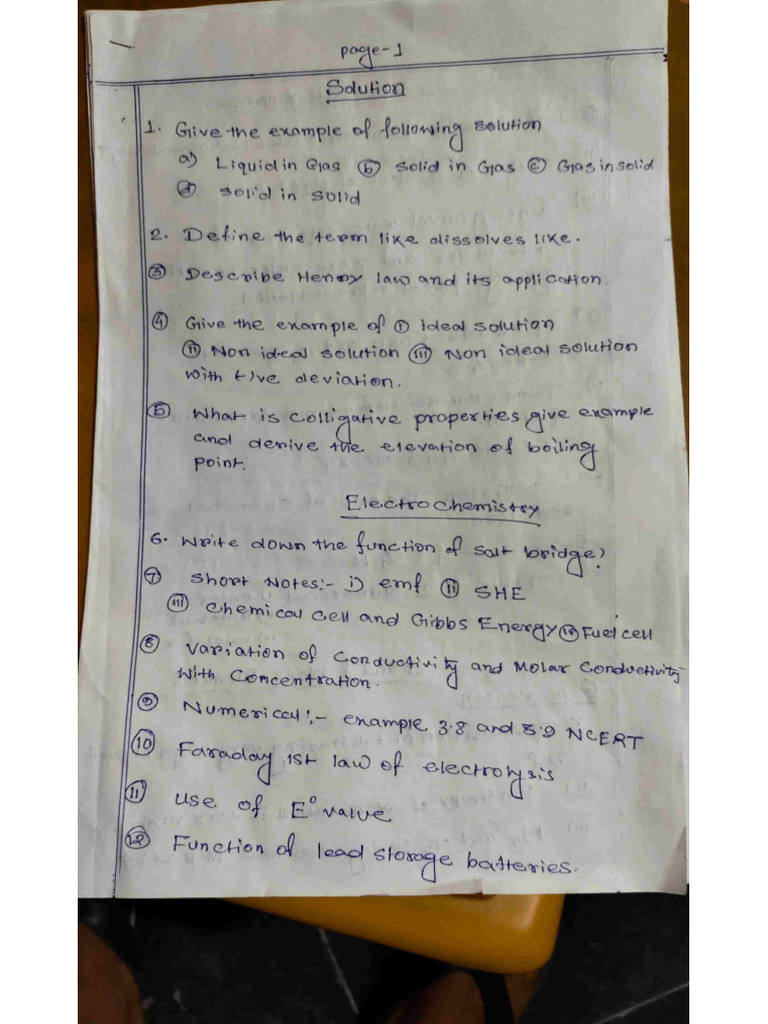 page-1
Solution
1. Give the example of following solution
a) Liquid in Gas ⓑ Solid in Gas ⓒ Gas in solid
ⓓ Solid in solid
2. Define the term like dissolves like.
③ Describe Henry law and its application.
④ Give the example of ⓘ Ideal solution
ⓘⓘ Non ideal solution ⓘⓘⓘ Non ideal solution
with +/-ve deviation.
⑤ What is colligative properties give example
and derive the elevation of boiling
point.
Electrochemistry
6. Write down the function of salt bridge?
⑦ Short Notes:- i) emf ⓘⓘ SHE
ⓘⓘⓘ Chemical cell and Gibbs Energy ⓘⓥ Fuel cell
⑧ Variation of conductivity and Molar Conductivity
with Concentration.
⑨ Numerical:- example 3.8 and 3.9 NCERT
⑩ Faraday 1st law of electrolysis
⑪ Use of E° value
⑫ Function of lead storage batteries.